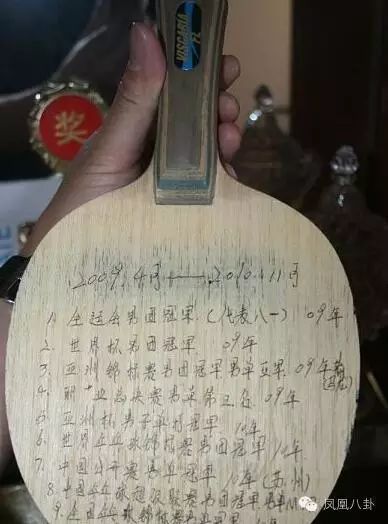 VISCARIA
FL
奖
2009.4月——2010.11月
1. 全运会男团冠军(代表八一) 09年
2 世界杯男团冠军 09年
3. 亚洲锦标赛男团冠军男单亚军 09年
4. 职业总决赛男单第三名 09年
5 亚洲杯男子单打冠军 10年
6. 世界乒乓球锦标赛男团冠军 10年
7. 中国公开赛男单冠军 10年(苏州)
8. 中国乒乓球超级联赛男团冠军
9. 全国乒乓球锦标赛男团冠军
凤凰八卦